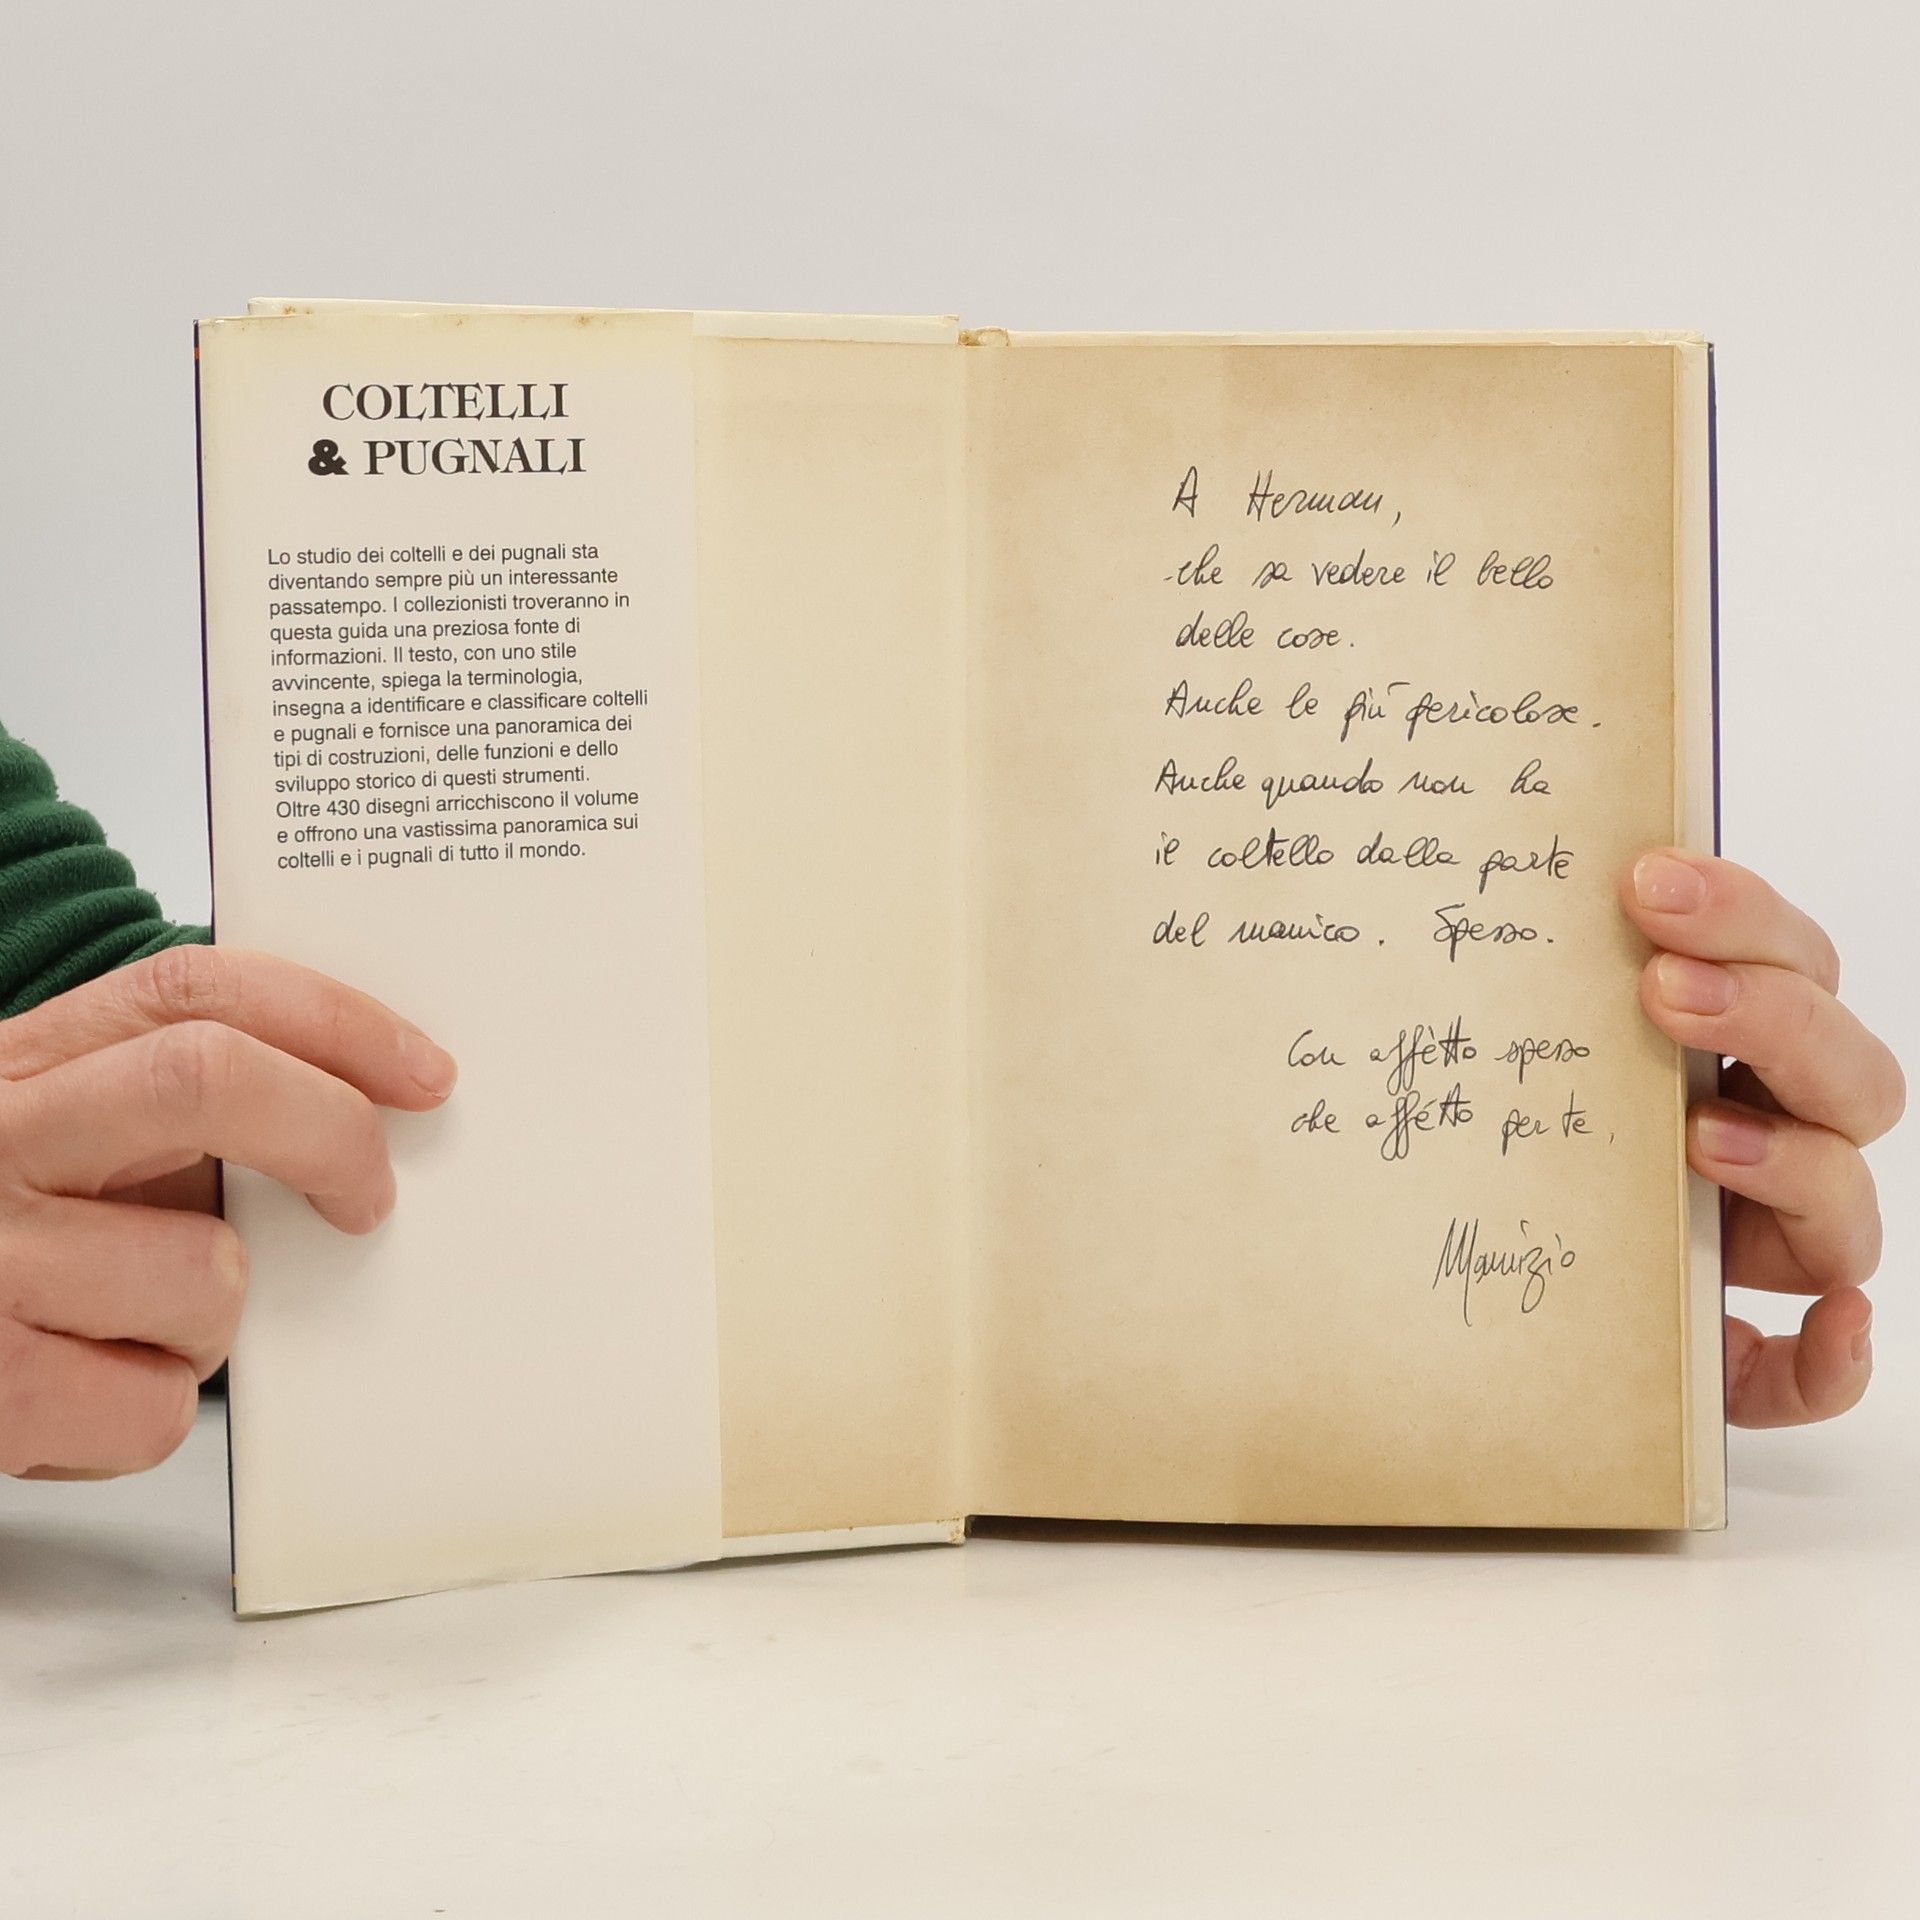 COLTELLI
& PUGNALI
Lo studio dei coltelli e dei pugnali sta
diventando sempre più un interessante
passatempo. I collezionisti troveranno in
questa guida una preziosa fonte di
informazioni. Il testo, con uno stile
avvincente, spiega la terminologia,
insegna a identificare e classificare coltelli
e pugnali e fornisce una panoramica dei
tipi di costruzioni, delle funzioni e dello
sviluppo storico di questi strumenti.
Oltre 430 disegni arricchiscono il volume
e offrono una vastissima panoramica sui
coltelli e i pugnali di tutto il mondo.
A Herman,
che sa vedere il bello
delle cose.
Anche le più pericolose.
Anche quando non ha
il coltello dalla parte
del manico. Spesso.
Con affètto spesso
che affétto per te,
Maurizio